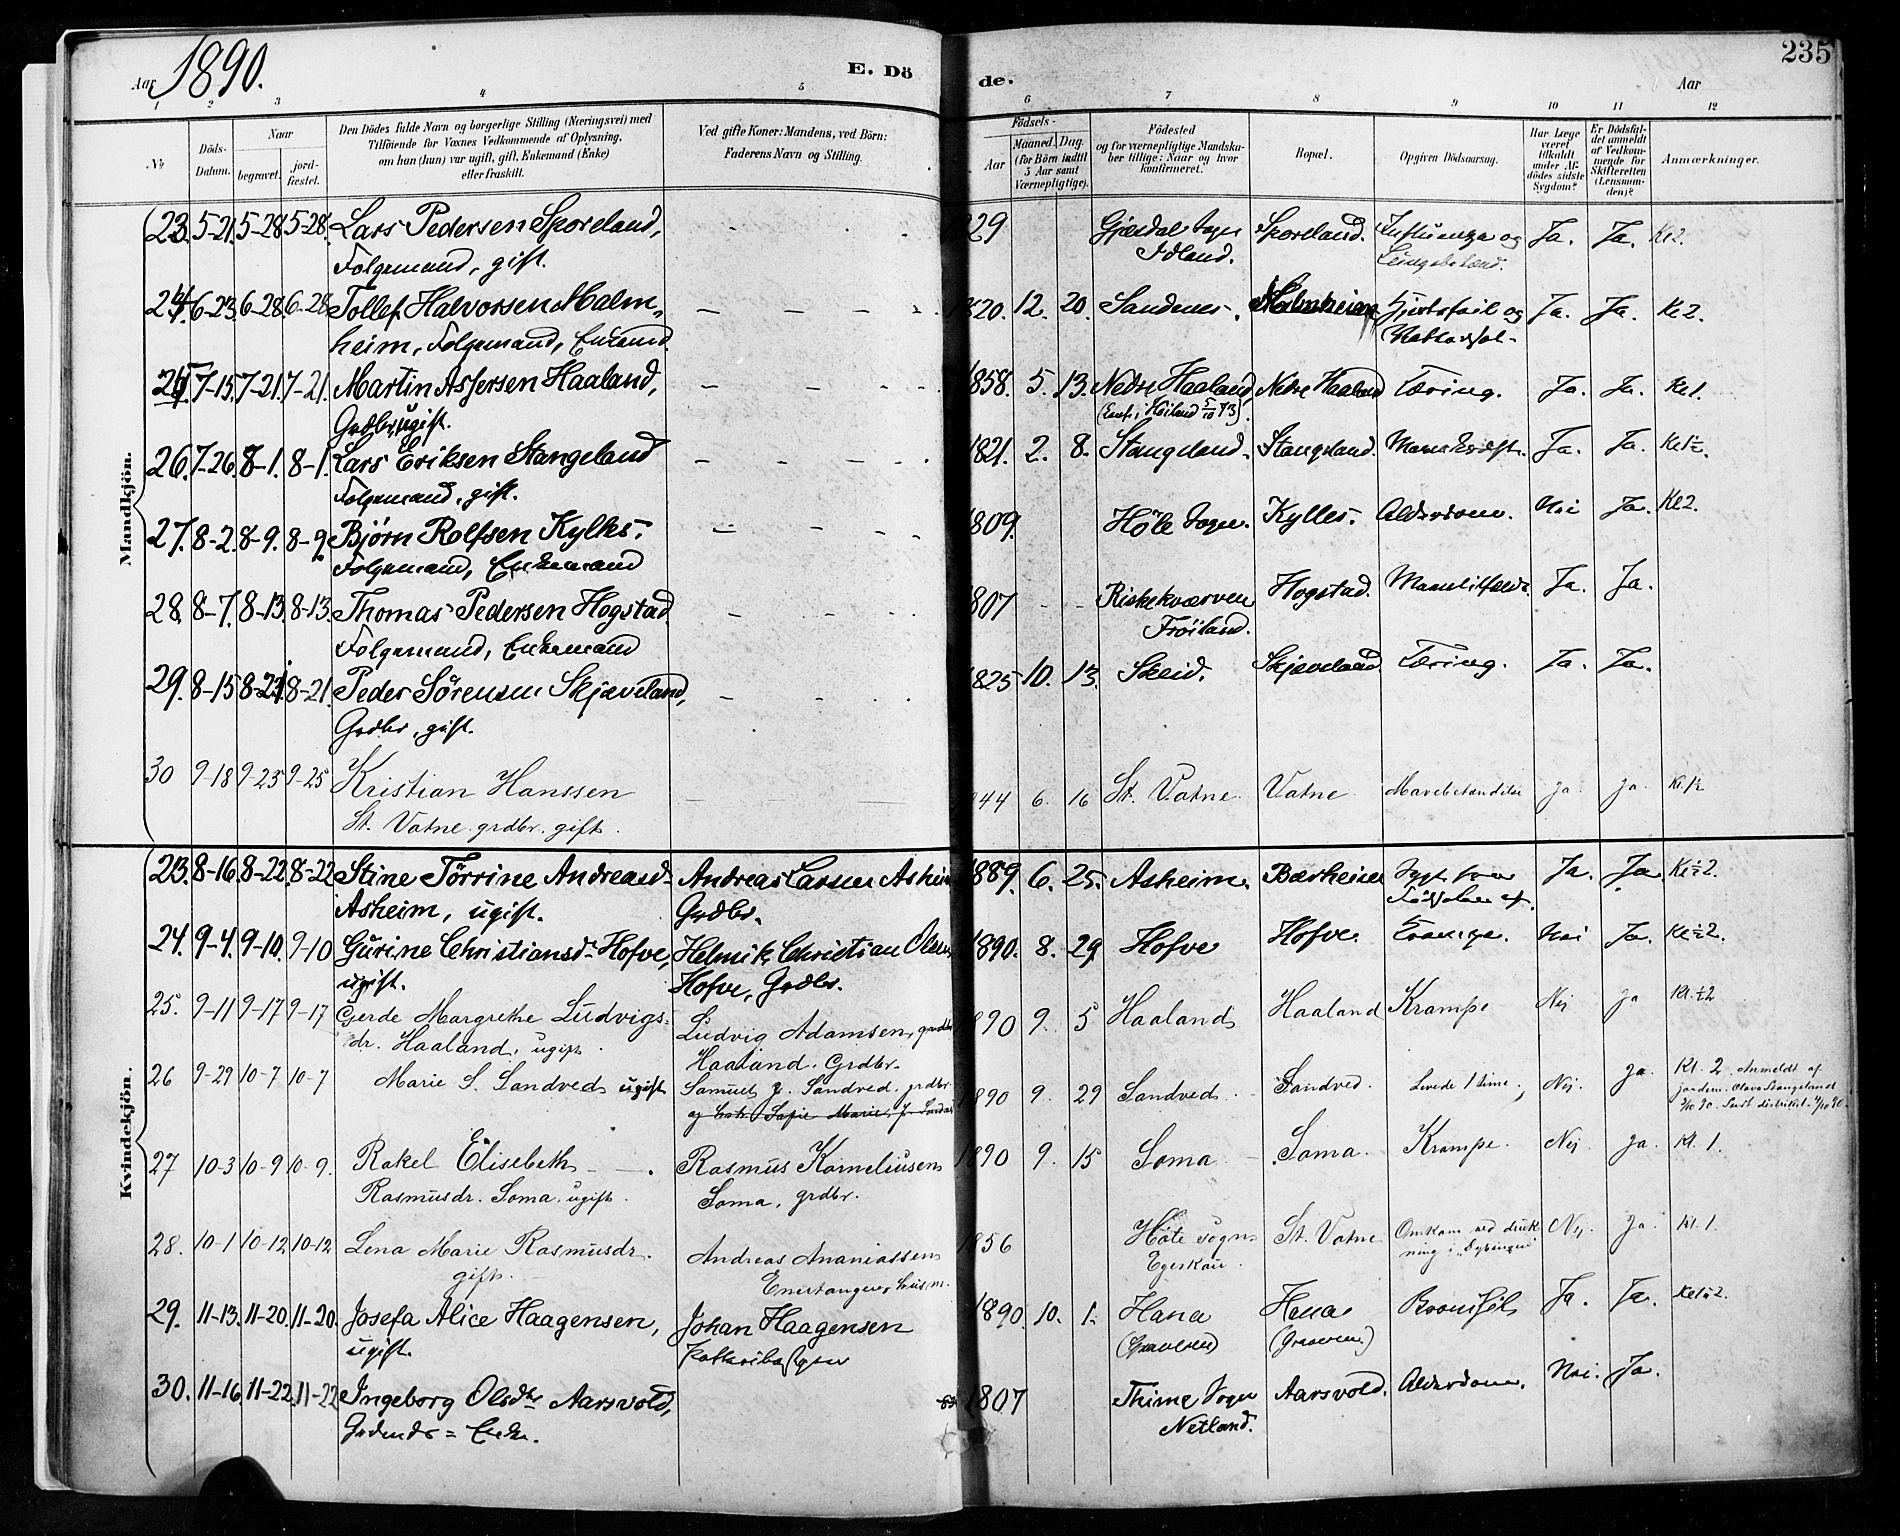 Aar 1890.
E. Dö
de.
235
Aar
1 2 3 4 5
6 7 8 9 10 11 12
No
Döds-Datum.
Naar
begravet.
jord-fæstet.
Den Dödes fulde Navn og borgerlige Stilling (Næringsvei) med
Tilföiende for Voxnes Vedkommende af Oplysning,
om han (hun) var ugift, gift, Enkemand (Enke)
eller fraskilt.
Ved gifte Koner: Mandens, ved Börn:
Faderens Navn og Stilling.
Födsels-
Aar
Maaned Dag
(for Börn indtil
5 Aar samt
Værnepligtige).
Födested
og for værnepligtige Mandska-
ber tillige: Naar og hvor
konfirmeret.
Bopæl.
Opgiven Dödsaarsag.
Har Læge
været
tilkaldt
under Af-
dödes sidste
Sygdom?
Er Dödsfal-
det anmeldt
af Vedkom-
mende for
Skifteretten
(Lensman-
den)?
Anmærkninger.
Mandkjön.
23. 5-21. 5-28. 5-28. Lars Pedersen Sporeland, 29 Gjæsdal Sogn Sporeland. Influenza og Ja. Ja. Kl 2.
Folgemand, gift. Idland.
24. 6-23. 6-28. 6-28. Tollef Halvorsen Malm- 820. 12. 20. Sandenes. Malmheim Hjertefeil og Ja. Ja. Kl 2.
heim, Folgemand, Enkemd.
25. 7-15. 7-21. 7-21. Martin Asgersen Haaland, 1858. 5. 13. Nedre Haaland Nedre Haaland Tæring. Ja. Ja. Kl 1.
Grdbr. ugift. (Konf. i Höiland 5/10 73).
26. 7-26. 8-1. 8-1. Lars Eriksen Stangeland 1821. 2. 8. Stangeland. Stangeland. Ja. Ja. Kl 1½.
Folgemand, gift.
27. 8-2. 8-9. 8-9. Bjørn Rolfsen Kylles. 1809. Høle Sogn. Kylles. Alderdom. Nei Ja. Kl 2.
Folgemand, Enkemand
28. 8-7. 8-13. 8-13. Thomas Pedersen Hogstad 807 Riskekværven Hogstad. Ja. Ja.
Folgemand, Enkemand Fröiland.
29. 8-15. 8-21. 8-21. Peder Sörensen Skjæveland, 1825 10. 13. Skeid. Skjæveland. Tæring. Ja. Ja.
Grdbr, gift.
30 9-18 9-25 9-25 Kristian Hanssen 44 6. 16 St. Vatne Vatne Mavebetændelse ja ja. Kl. ½
St. Vatne grdbr. gift.
Kvindekjön.
23. 8-16. 8-22. 8-22 Stine Törrine Andreasd. Andreas Larsen Asheim 1889. 6. 25. Asheim. Bærheim Sygt fra Ja. Ja. Kl ½2.
Asheim, ugift. Grdbr. Födselen af.
24. 9-4. 9-10. 9-10 Gurine Christiansd. Hofve, Helmik Christian Olsen 1890. 8. 29 Hofve Hofve. Krampe. Nei Ja. Kl ½2.
ugift. Hofve, Grdbr.
25. 9-11 9-17 9-17 Gerde Margrethe Ludvigs- Ludvig Adamsen, grdbr 1890 9. 5 Haaland Haaland Krampe Nej ja Kl. ½2
dr. Haaland, ugift. Haaland. Grdbr.
26 9-29 10-7 10-7 Marie S. Sandved ugift Samuel J. Sandved, grdbr. 1890 9. 29 Sandved. Sandved. Levede 1 time. Nej. ja. Kl. 2. Anmeldt af
og Sofie Marie jordem. Olava Stangeland
27 10-3 10-9 10-9. Rakel Elisebeth Rasmus Korneliusen 1890 9. 15 Soma Soma. Krampe. Nej ja. Kl. 1.
Rasmusdr. Soma, ugift. Soma, grdbr.
28. 10-1 10-12 10-12 Lena Marie Rasmusdr. Andreas Ananiassen 1856 Høle sogn St. Vatne Omkom ved druk- Nej. ja. Kl. 1.
gift. husm. Egeskau. ning i „Dybingen"
29. 11-13. 11-20. 11-20. Josefa Alice Haagensen, Johan Haagensen 1890. 10. 1. Hana Hana Ja. Ja. Kl ½2.
ugift. (Graveren) (Graaveren.)
30. 11-16. 11-22. 11-22 Ingeborg Olsdtr Aarsvold, 1807 Thime Sogn Aarsvold. Alderdom. Nei. Ja.
Grdmds = Enke. Netland.